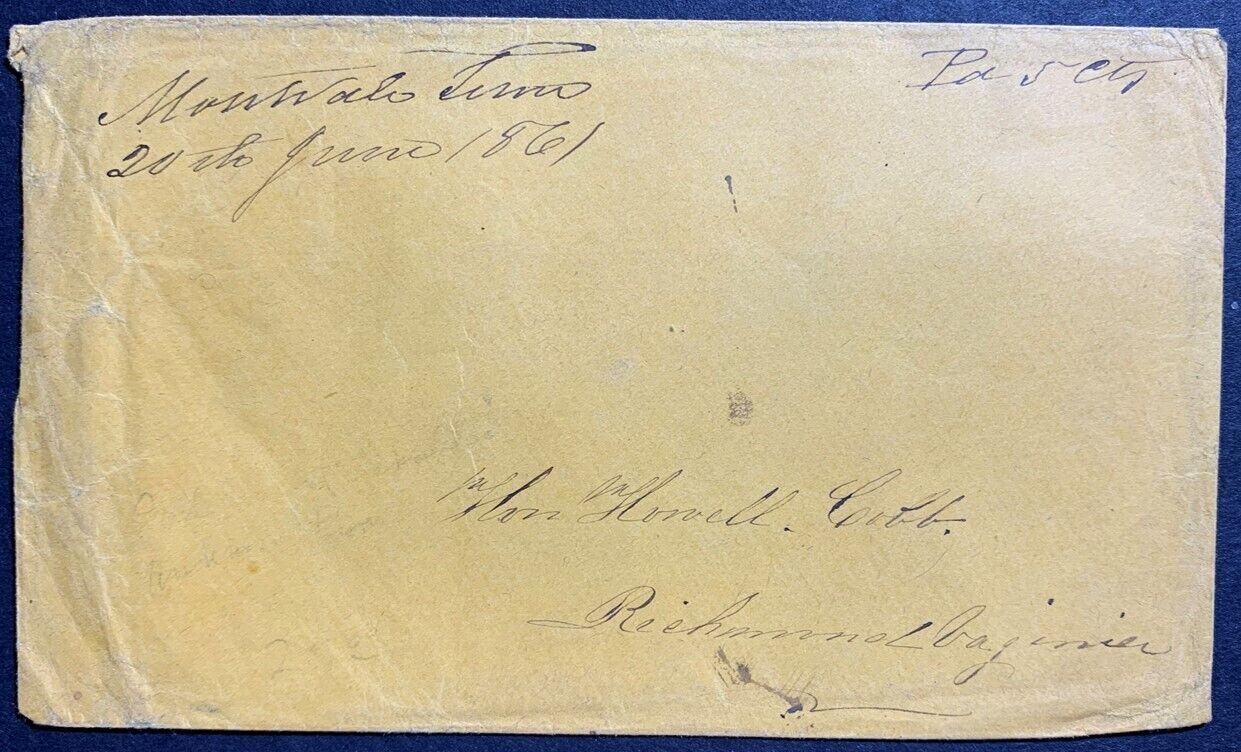 Montvale Tenn
Pd 5 Cts
20th June 1861
Hon Howell. Cobb.
Richmond Vaginia